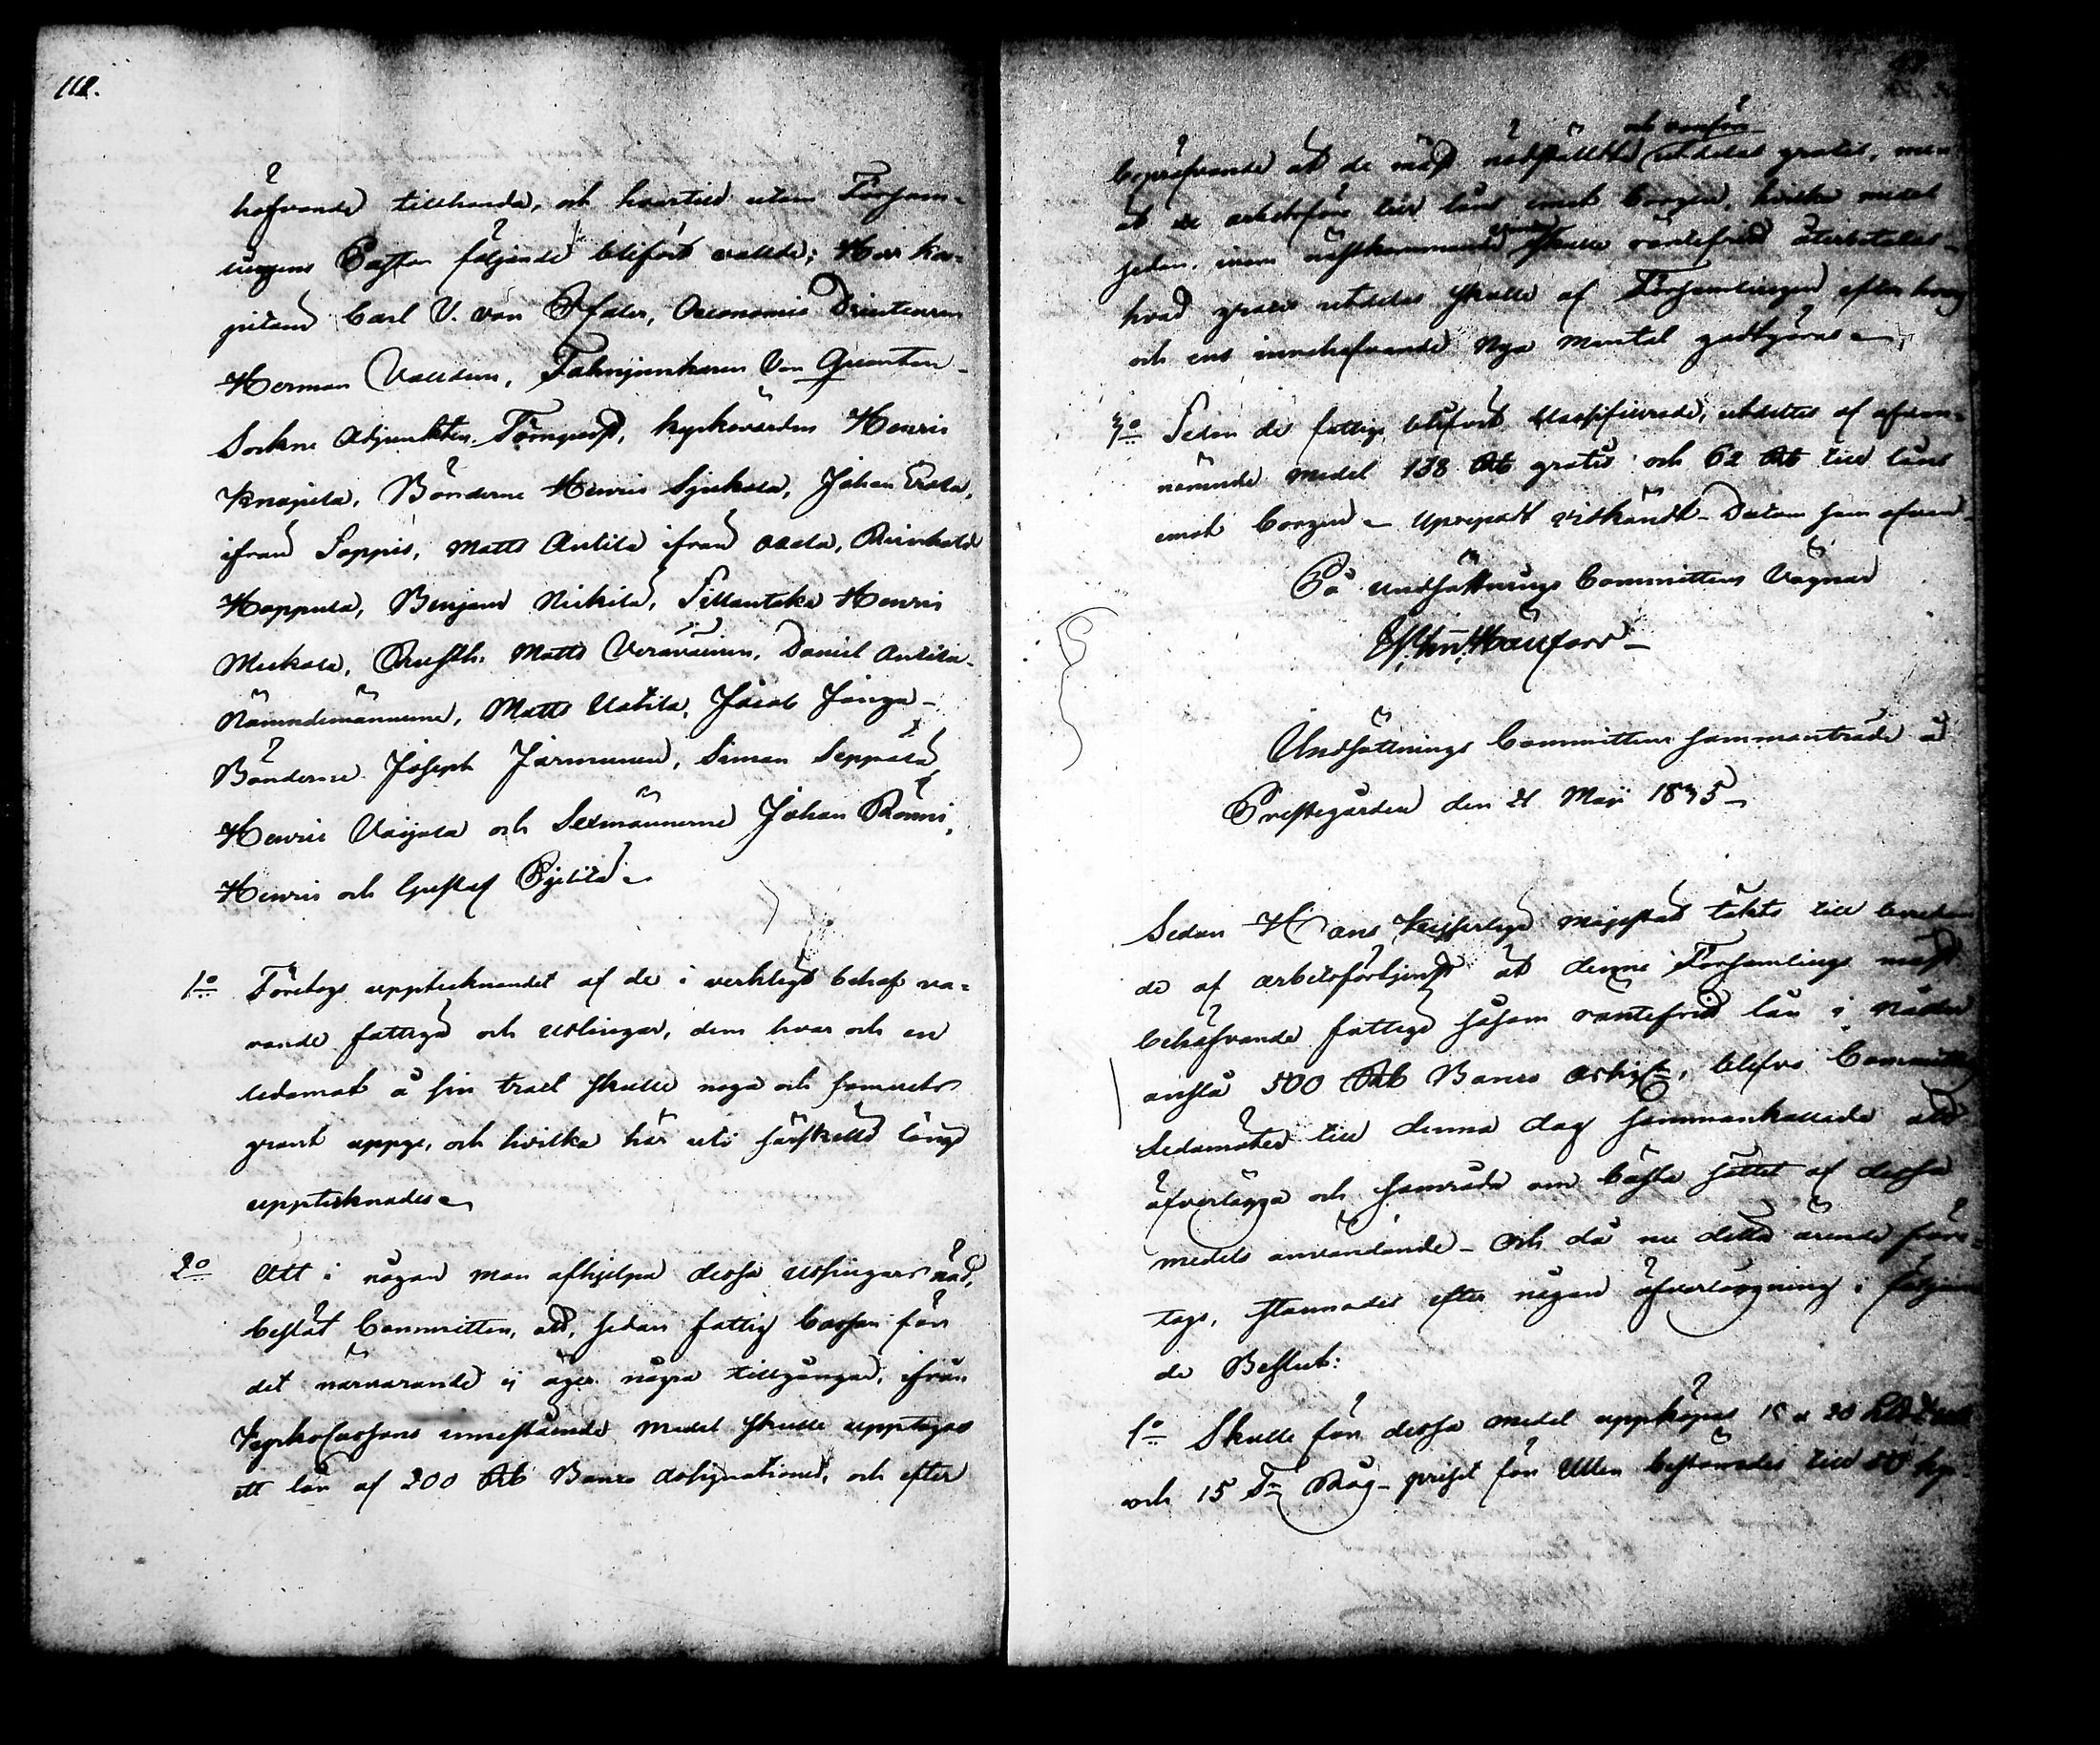 112.
hofvande tillhanda, och hvartill utom Försam-
lingens Pastor följande blifvit vallde; Herr Ka-
pitain Carl V. von Pfaler, Oeconomie Directeuren
Herman Vallden, Fahnjunkaren Von Qvanten
Sockne Adjunkten Törnqvist, kyrkovärden Henric
Knapila, Bönderne Henric Sjukola, Johan
ifrån Soppis, Matts Antila ifrån Oxsta, Reinhold
Hoppula, Benjam Nickila, Siltantaka Henric
Muckola, Matts Veräväinen, Daniel Antila
Nämndemännerne, Matts Uotila, Jacob Janga
Bönderne Joseph Jarmunen, Simon Seppälä
Henric Vaijola och Sexmännerne Johan Rönni,
Henric och Gustaf Pjetilä
1:o Företogs upptecknandet af de i verkligt behof va-
rande fattiga och uslingar, dem hvar och en
ledamot å sin tract skulle noga och samvets
grant uppge, och hvilka här uti särskild längd
upptecknades
2:o Att i någon mon afhjelpa dessa uslingars nöd,
beslöt Committen, att, sedan fattig Cassan för
det närvarande ej äger några tillgångar, ifrån
KyrkoCassans innestående medel skulle upptagas
ett lån af 200 Rub Banco Assignationer, och efter
bepröfvande åt de mäst nödställda och vanföra utdelas gratis, men
åt de arbetsföre till låns emot borgen, hvilka medel
sedan inom nästkommande skulle räntefritt återbetalas
hvad gratis utdelas skulle af Församlingen efter hvars
och ens innehafvande Nya mantal godtgöras
3:o Sedan de fattige blifvit klassificerade, utdeltes af ofvan-
nämnde medel 138 Rub gratis och 62 Rub till låns
emot borgen Upprepadt vitkändt Datum som ofvan
På Undsättnings Committens Vägnar
Undsättnings Committens sammanträde å
Prestegården den 21 Maji 1835
Sedan Hans Keijserliga Majestät täkts till beredan
de af arbetsförtjenst åt denne Församlings mäst
behöfvande fattige såsom räntefritt lån i Nåder
anslå 500 Rub Banco Assign:r, blefvo Committens
Ledamöter till denna dag sammankallade att
öfverlägga och samråda om bästa sättet af dessa
medels användande Och då nu detta ärende före-
togs, stannades efter någon öfverläggning i följan
de Beslut:
1:o Skulle för dessa medel uppköpas 15 a 20 Ull
och 15 T:r Råg priset för Ullen bestämdes till 50 kop